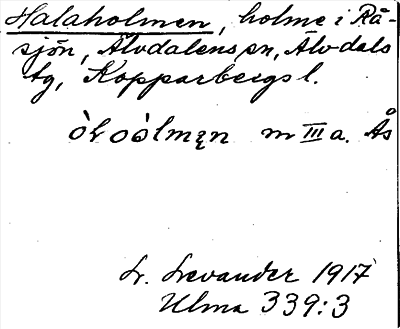 Halaholmen, holme i Rå-
sjön, Älvdalens sn, Älvdals
tg, Kopparbergs l.
m III a. Ås
L. Levander 1917
Ulma 339:3